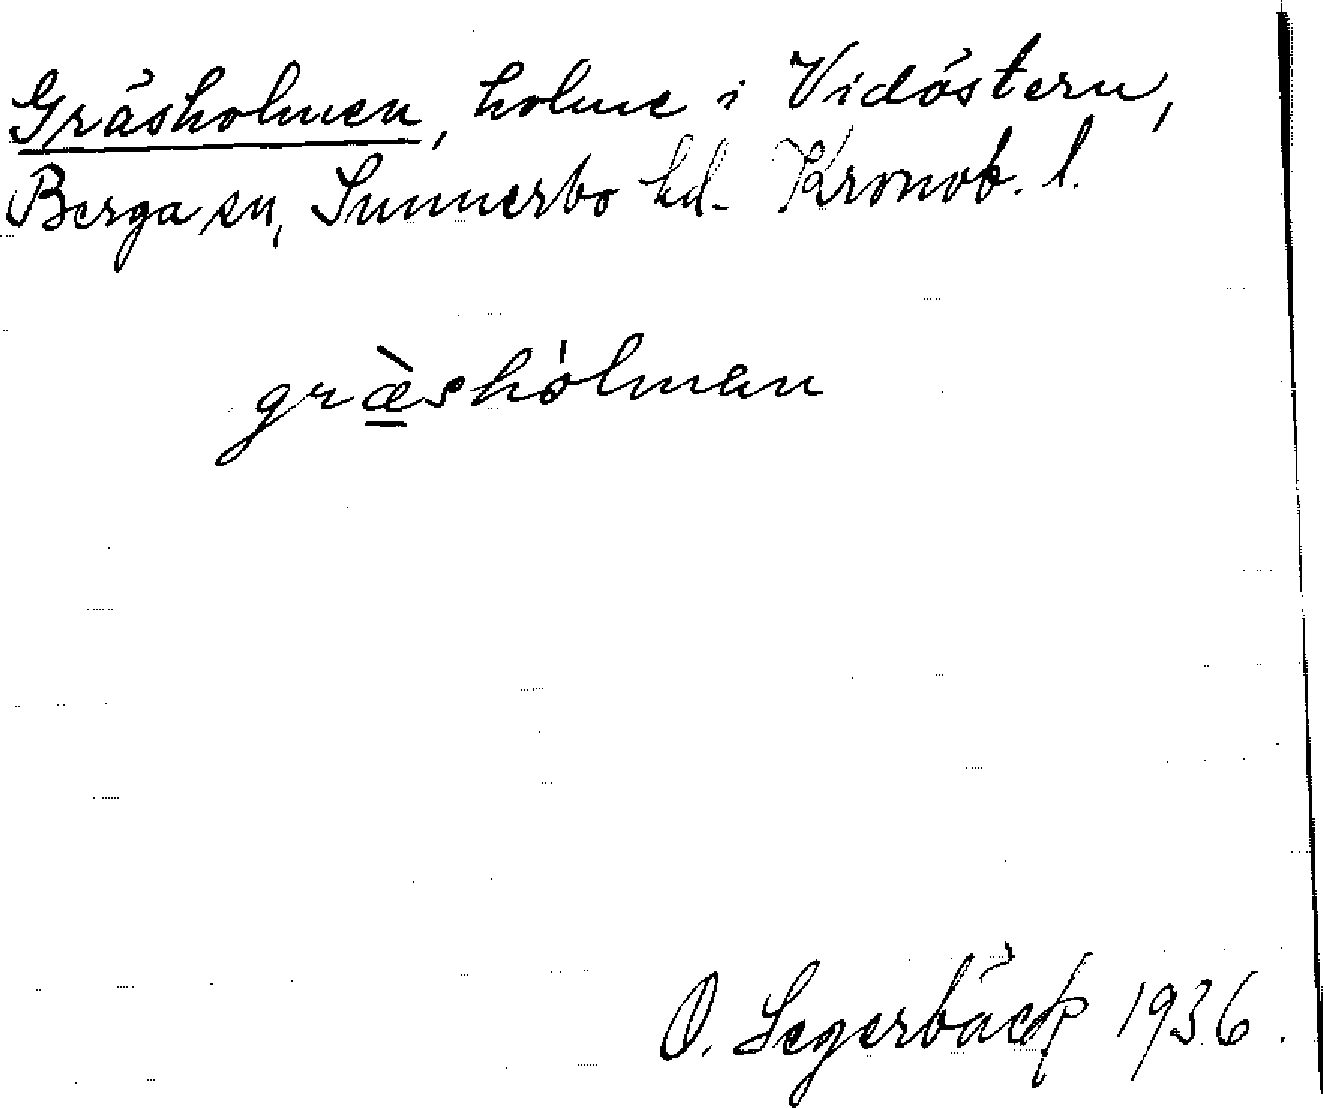 Gräsholmen, holme i Vidöstern,
Berga sn, Sunnerbo hd. Kronob. l.
græ̀shȯlmen
O. Segerbäck 1936.